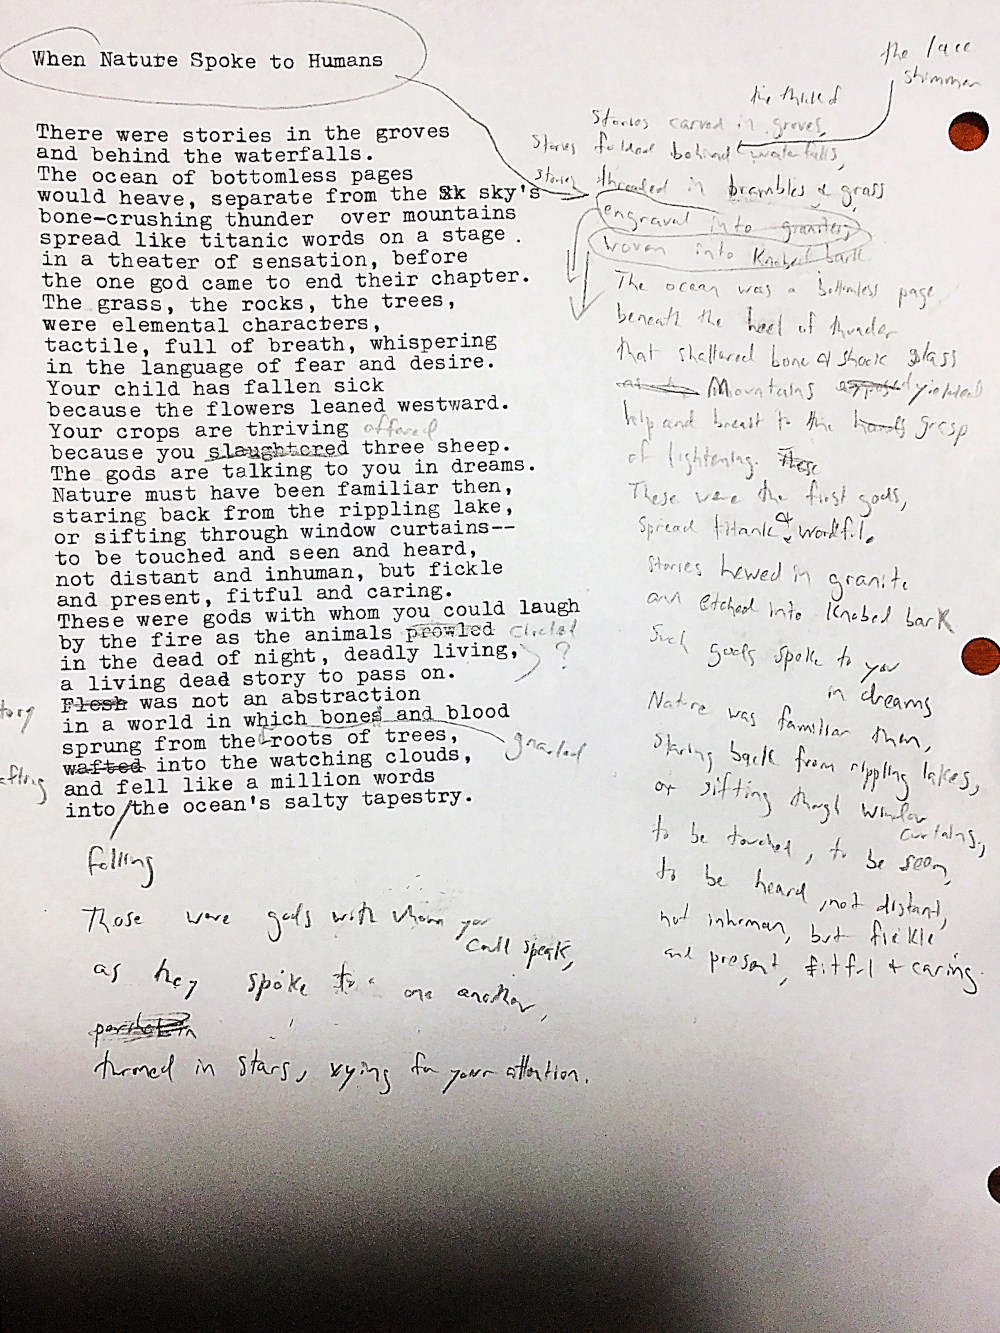 When Nature Spoke to Humans
There were stories in the groves
and behind the waterfalls.
The ocean of bottomless pages
would heave, separate from the sk sky's
bone-crushing thunder over mountains
spread like titanic words on a stage .
in a theater of sensation, before
the one god came to end their chapter.
The grass, the rocks, the trees,
were elemental characters,
tactile, full of breath, whispering
in the language of fear and desire.
Your child has fallen sick
because the flowers leaned westward.
Your crops are thriving offered
because you slaughtered three sheep.
The gods are talking to you in dreams.
Nature must have been familiar then,
staring back from the rippling lake,
or sifting through window curtains--
to be touched and seen and heard,
not distant and inhuman, but fickle
and present, fitful and caring.
These were gods with whom you could laugh
by the fire as the animals prowled circled
in the dead of night, deadly living, ?
a living dead story to pass on.
Flesh was not an abstraction
in a world in which bones and blood
sprung from the roots of trees, gnarled
wafted into the watching clouds,
and fell like a million words
into the ocean's salty tapestry.
falling
Those were gods with whom you
could speak,
as they spoke to one another,
turned in stars, vying for your attention.
the lace
shimmer
Stories carved in groves,
Stories folded behind waterfalls,
stories threaded in brambles & grass
engraved into granite,
woven into knobed bark
The ocean was a bottomless page
beneath the heel of thunder
that shattered bone & shook glass
Mountains yielded
hip and breast to the hands grasp
of lightening. These
These were the first gods,
spread titanic & wordful.
stories hewed in granite
and etched into knobed bark
Such gods spoke to you
in dreams
Nature was familiar then,
staring back from rippling lakes,
or sifting though window
curtains,
to be touched, to be seen,
to be heard, not distant,
not inhuman, but fickle
and present, fitful & caring.